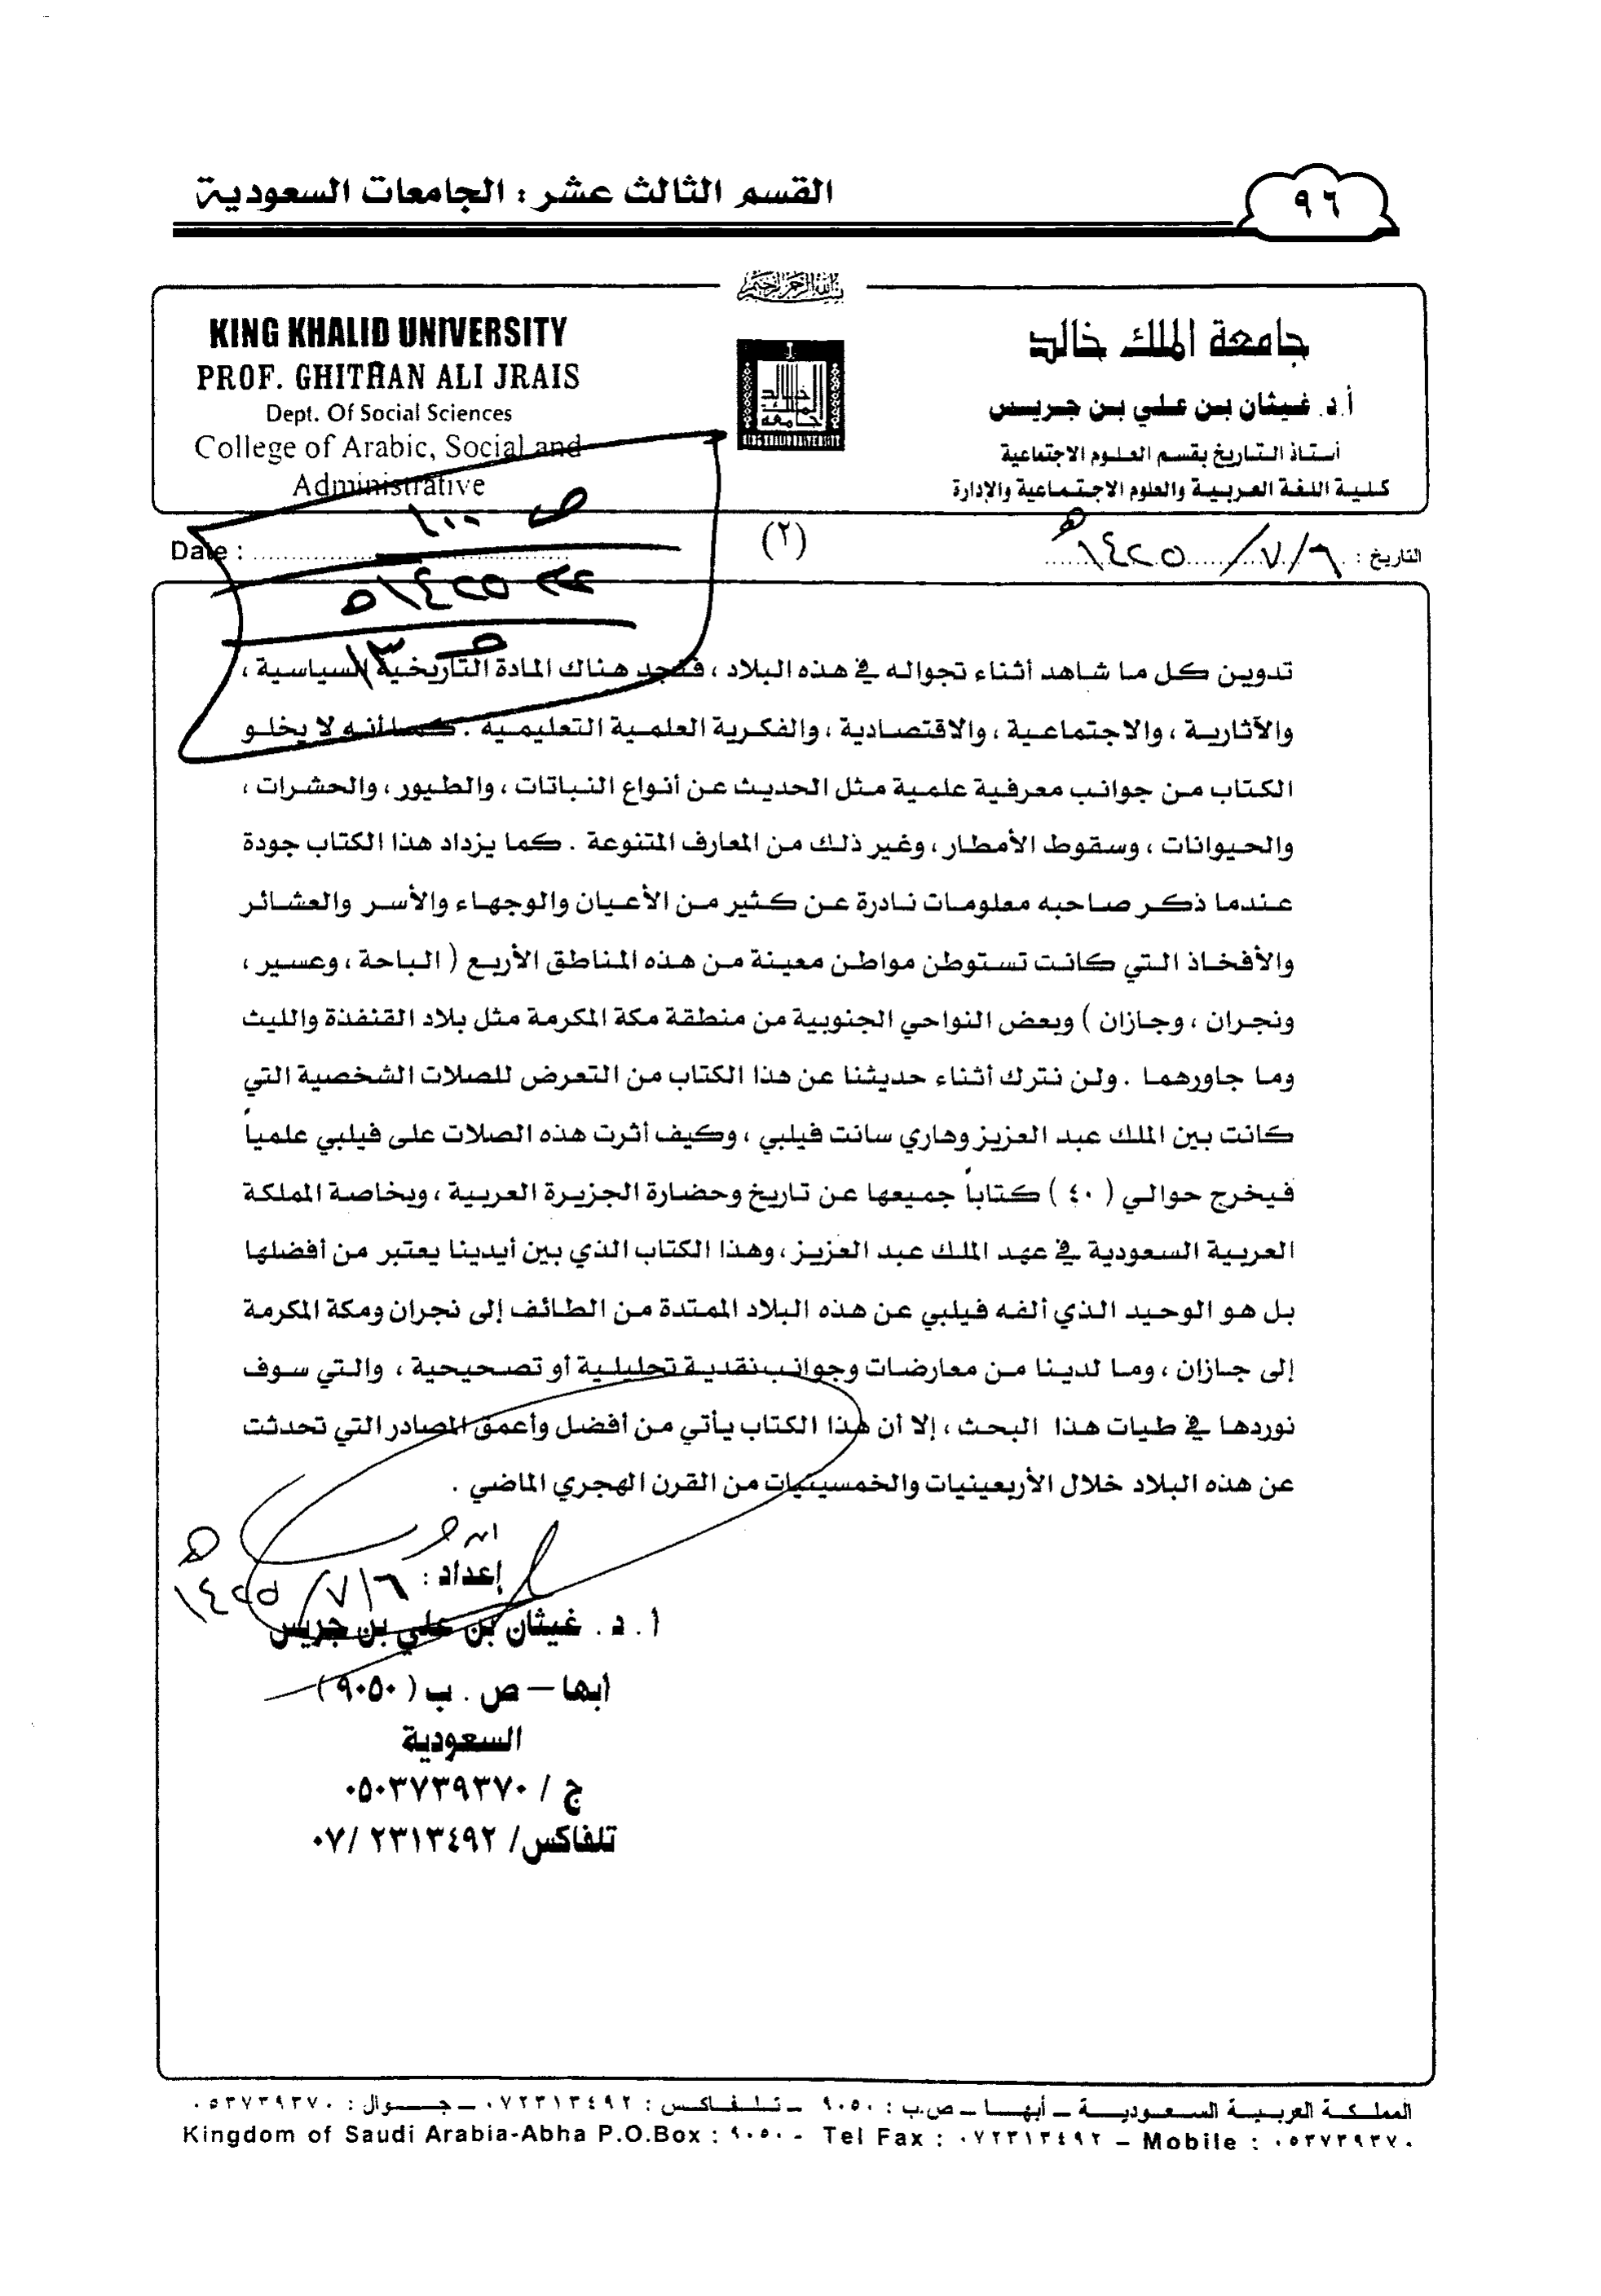 ٩٦
القسم الثالث عشر : الجامعات السعودية
بسم الله الرحمن الرحيم
جامعة الملك خالد
أ.د. غيثان بن علي بن جريس
أستاذ التاريخ بقسم العلوم الاجتماعية
كلية اللغة العربية والعلوم الاجتماعية والإدارة
KING KHALID UNIVERSITY
PROF. GHITHAN ALI JRAIS
Dept. Of Social Sciences
College of Arabic, Social and
Administrative
التاريخ : ٦/٧/١٤٢٥هـ
(٢)
Date :
ص ١٠٠
١٤٢٥هـ
ص ١٣
تدوين كل ما شاهد أثناء تجواله في هذه البلاد ، فنجد هناك المادة التاريخية السياسية ،
والآثارية ، والاجتماعية ، والاقتصادية ، والفكرية العلمية التعليمية . كما أنه لا يخلو
الكتاب من جوانب معرفية علمية مثل الحديث عن أنواع النباتات ، والطيور ، والحشرات ،
والحيوانات ، وسقوط الأمطار ، وغير ذلك من المعارف المتنوعة . كما يزداد هذا الكتاب جودة
عندما ذكر صاحبه معلومات نادرة عن كثير من الأعيان والوجهاء والأسر والعشائر
والأفخاذ التي كانت تستوطن مواطن معينة من هذه المناطق الأربع ( الباحة ، وعسير ،
ونجران ، وجازان ) وبعض النواحي الجنوبية من منطقة مكة المكرمة مثل بلاد القنفذة والليث
وما جاورهما . ولن نترك أثناء حديثنا عن هذا الكتاب من التعرض للصلات الشخصية التي
كانت بين الملك عبد العزيز وهاري سانت فيلبي ، وكيف أثرت هذه الصلات على فيلبي علمياً
فيخرج حوالي ( ٤٠ ) كتاباً جميعها عن تاريخ وحضارة الجزيرة العربية ، وبخاصة المملكة
العربية السعودية في عهد الملك عبد العزيز ، وهذا الكتاب الذي بين أيدينا يعتبر من أفضلها
بل هو الوحيد الذي ألفه فيلبي عن هذه البلاد الممتدة من الطائف إلى نجران ومكة المكرمة
إلى جازان ، وما لدينا من معارضات وجوانب نقدية تحليلية أو تصحيحية ، والتي سوف
نوردها في طيات هذا البحث ، إلا أن هذا الكتاب يأتي من أفضل وأعمق المصادر التي تحدثت
عن هذه البلاد خلال الأربعينيات والخمسينيات من القرن الهجري الماضي .
إعداد :
٦/٧/١٤٢٥هـ
أ . د . غيثان بن علي بن جريس
ابها – ص . ب ( ٩٠٥٠ )
السعودية
ج / ٠٥٠٣٧٣٩٣٧٠
تلفاكس/ ٢٣١٣٤٩٢ /٠٧
المملكة العربية السعودية – أبها – ص.ب : ٩٠٥٠ – تلفاكس : ٠٧٢٣١٣٤٩٢ – جوال : ٠٥٣٧٣٩٣٧٠
Kingdom of Saudi Arabia-Abha P.O.Box : ٩٠٥٠ - Tel Fax : ٠٧٢٣١٣٤٩٢ – Mobile : ٠٥٣٧٣٩٣٧٠